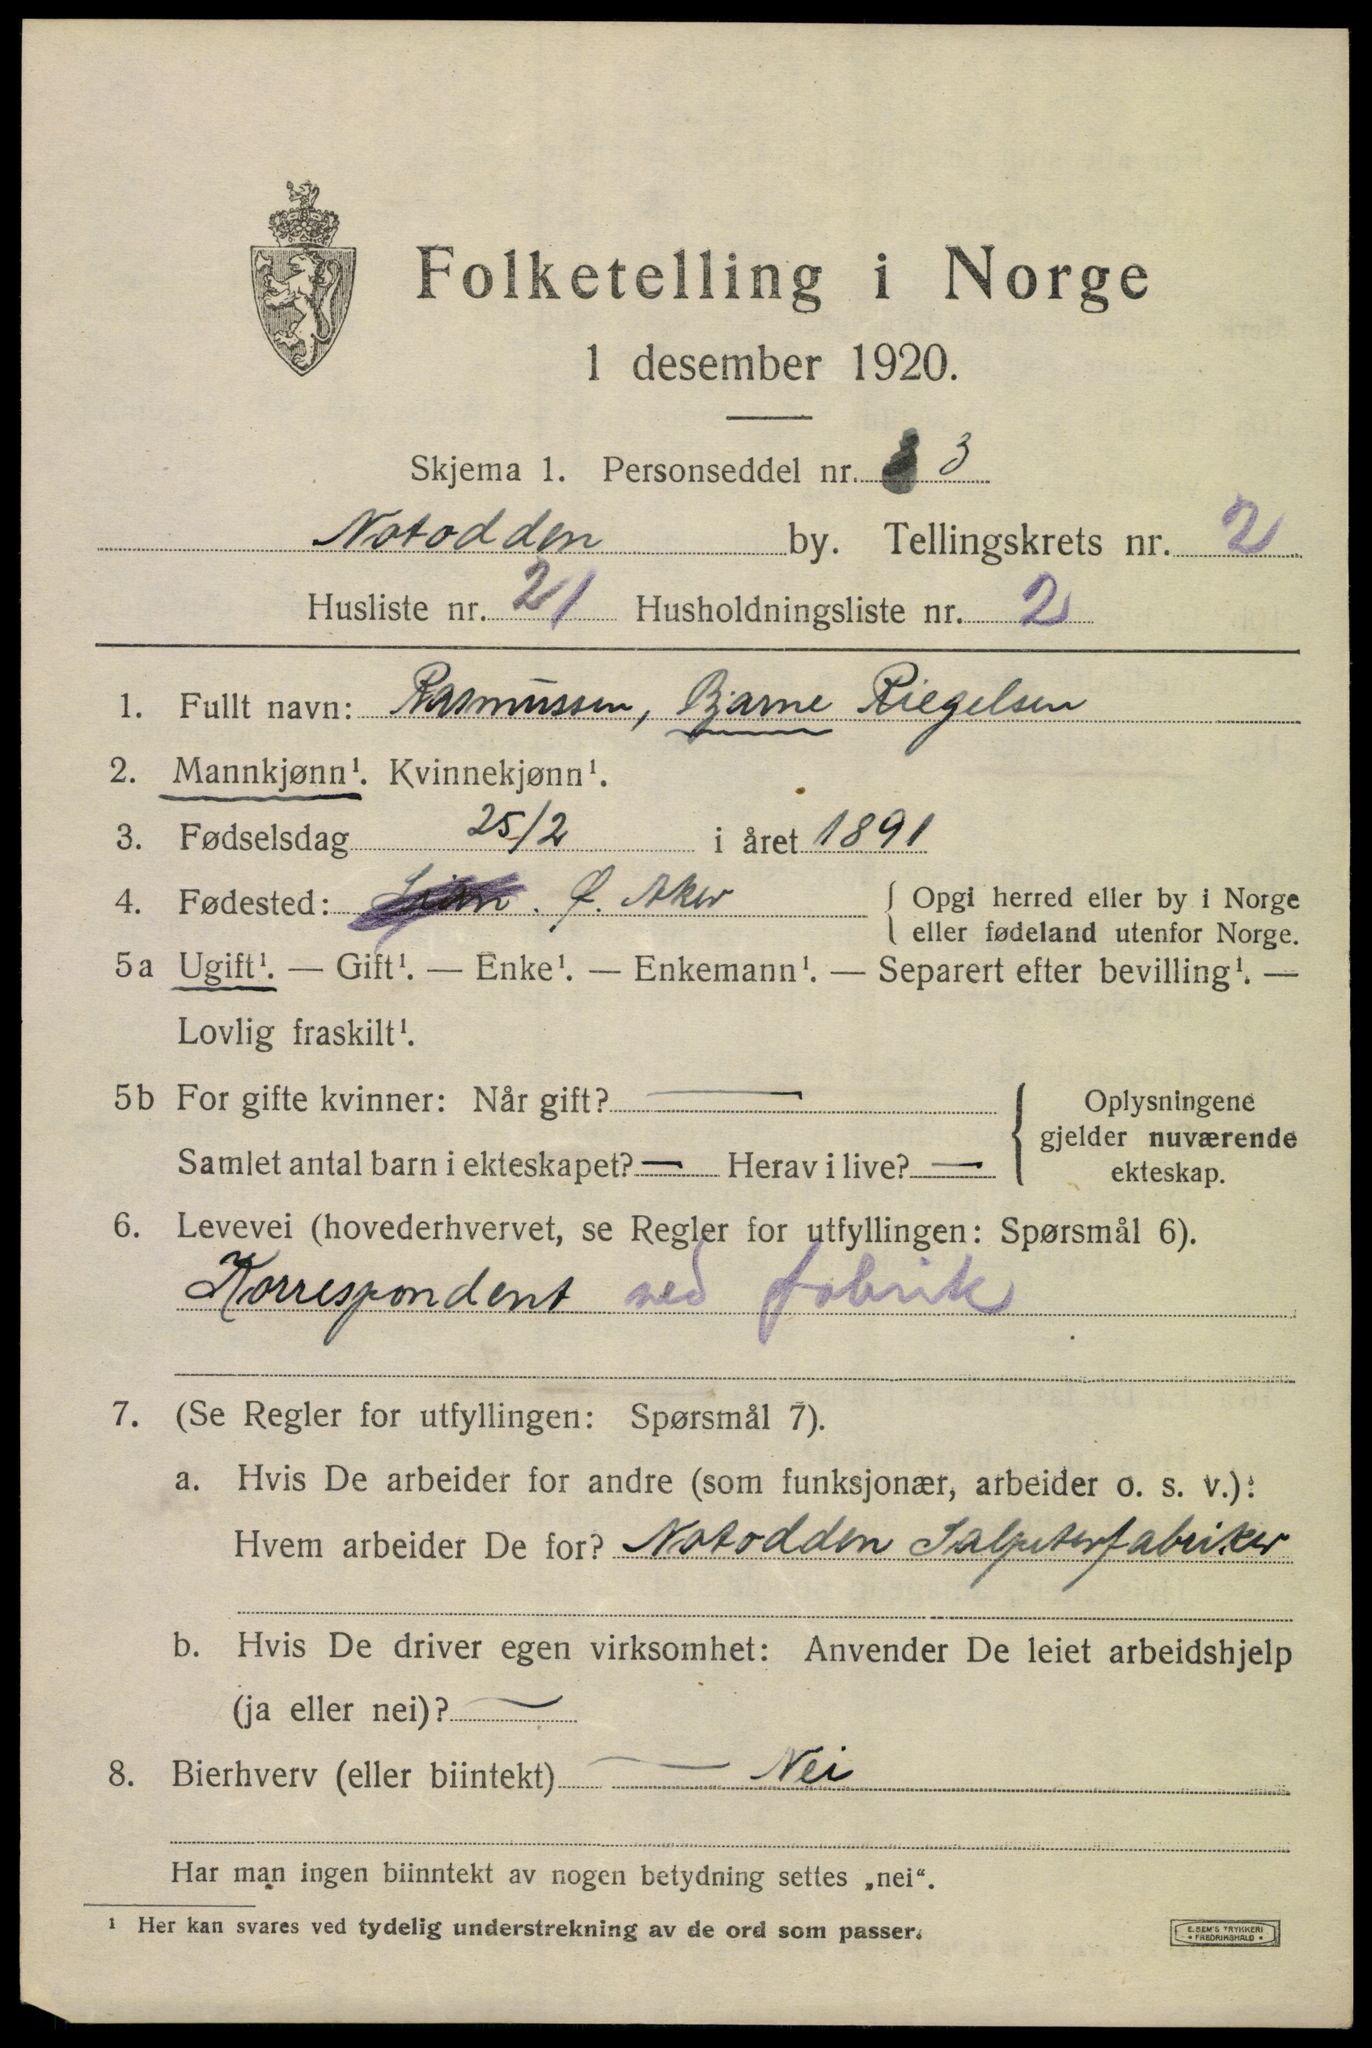 Folketelling i Norge
1 desember 1920.
Skjema 1. Personseddel nr. 3
Notodden by. Tellingskrets nr. 2
Husliste nr. 21 Husholdningsliste nr. 2
1. Fullt navn: Rasmussen, Bjarne Riegelsen
2. Mannkjønn¹. Kvinnekjønn¹.
3. Fødselsdag 25/2 i året 1891
4. Fødested: Ø. Aker { Opgi herred eller by i Norge
eller fødeland utenfor Norge.
5a Ugift¹. — Gift¹. — Enke¹. — Enkemann¹. — Separert efter bevilling¹. —
Lovlig fraskilt¹.
5b For gifte kvinner: Når gift? —
Samlet antal barn i ekteskapet? — Herav i live? —
{ Oplysningene
gjelder nuværende
ekteskap.
6. Levevei (hovederhvervet, se Regler for utfyllingen: Spørsmål 6).
Korrespondent ved fabrik
7. (Se Regler for utfyllingen: Spørsmål 7).
a. Hvis De arbeider for andre (som funksjonær, arbeider o. s. v.):
Hvem arbeider De for? Notodden Salpeterfabriker
b. Hvis De driver egen virksomhet: Anvender De leiet arbeidshjelp
(ja eller nei)? —
8. Bierhverv (eller biintekt) — Nei
Har man ingen biinntekt av nogen betydning settes „nei“.
¹ Her kan svares ved tydelig understrekning av de ord som passer.
E. SEM'S TRYKKERI
• FREDRIKSHALD •